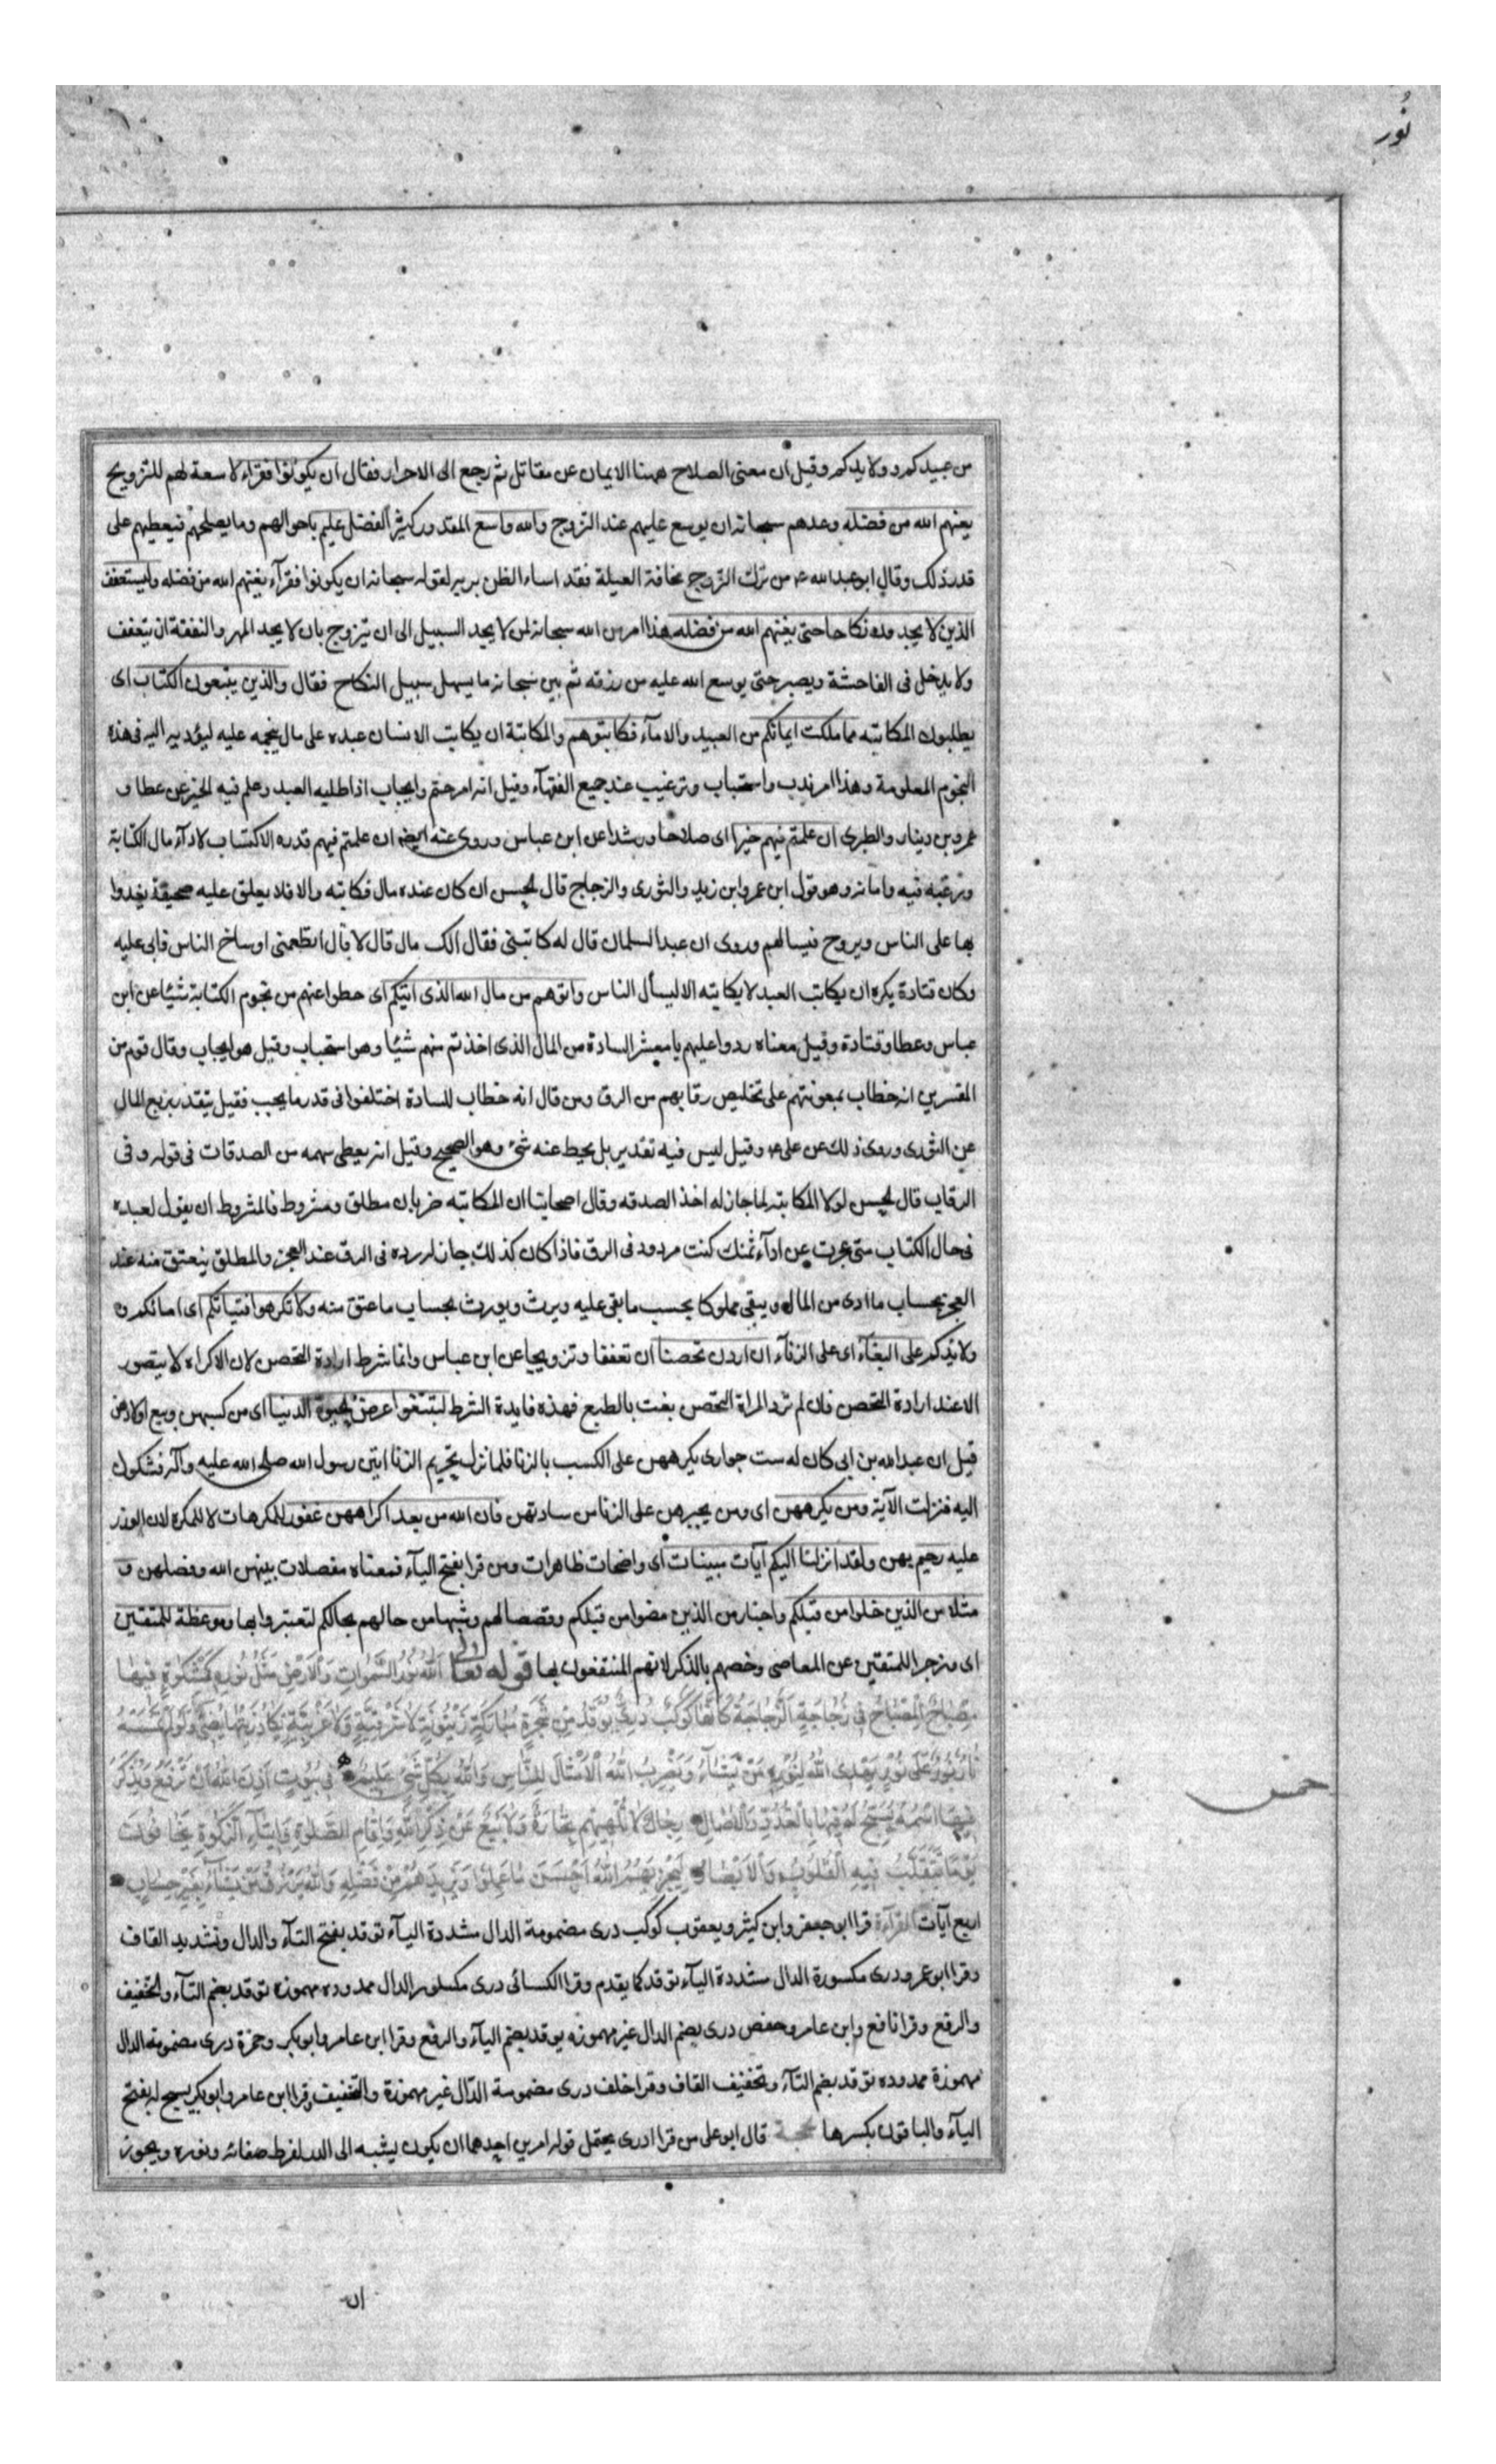 نُور
من عبيدكم و ولايدكم وقيل ان معنى الصلاح ههنا الايمان عن مقاتل ثم رجع الى الاحرار فقال ان يكونوا فقراء لا سعة لهم للتزويج
يغنهم الله من فضله وعدهم سبحانه ان يوسع عليهم عند التزوج والله واسع المقدور كثير الفضل عليم باحوالهم وما يصلحهم فيعطيهم على
قدر ذلك وقال ابو عبد الله ع من ترك التزوج مخافة العيلة فقد اساء الظن بربه لقوله سبحانه ان يكونوا فقرآء يغنهم الله من فضله وليستعفف
الذين لا يجدون نكاحا حتى يغنهم الله من فضله هذا امر من الله سبحانه لمن لا يجد السبيل الى ان يتزوج بان لا يجد المهر والنفقة ان يتعفف
ولا يدخل فى الفاحشة ويصبر حتى يوسع الله عليه من رزقه ثم بين سبحانه ما يسهل سبيل النكاح فقال والذين يبتغون الكتاب اى
يطلبون المكاتبه مما ملكت ايمانكم من العبيد والامآء فكاتبوهم والمكاتبة ان يكاتب الانسان عبده على مال ينجمه عليه ليؤديه اليه فى هذه
النجوم المعلومة وهذا امر ندب واستحباب وترغيب عند جميع الفقهآء وقيل انه امر حتم وايجاب اذا طلبه العبد وعلم فيه الخير عن عطا و
عمرو بن دينار والطبرى ان علمتم فيهم خيرا اى صلاحا ورشدا عن ابن عباس وروى عنه ايضا ان علمتم فيهم قدره الاكتساب لادآء مال الكتابة
ورغبه فيه وامانه وهو قول ابن عمر وابن زيد والثورى والزجاج قال الحسن ان كان عنده مال فكاتبه والا فلا يعلق عليه صحيفة يغدوا
بها على الناس ويروح فيسالهم وروى ان عبدا لسلمان قال له كاتبنى فقال الك مال قال لا قال اتطعمنى اوساخ الناس فابى عليه
وكان قتادة يكره ان يكاتب العبد لا يكاتبه الا ليسأل الناس واتوهم من مال الله الذى اتيكم اى حطوا عنهم من نجوم الكتابة شيئا عن ابن
عباس وعطا وقتادة وقيل معناه ردوا عليهم يا معشر السادة من المال الذى اخذتم منهم شيئا وهو استحباب وقيل هو ايجاب وقال قوم من
المفسرين انه خطاب بمعونتهم على تخليص رقابهم من الرق ومن قال انه خطاب للسادة اختلفوا فى قدر ما يجب فقيل يتقدر بربع المال
عن الثورى وروى ذلك عن على ع وقيل ليس فيه تقدير بل يحط عنه شئ وهو الصحيح وقيل انه يعطى سهمه من الصدقات فى قوله وفى
الرقاب قال الحسن لولا المكاتبة لما جاز له اخذ الصدقه وقال اصحابنا ان المكاتبه ضربان مطلق ومشروط فالمشروط ان يقول لعبده
فى حال الكتاب متى عجزت عن ادآء ثمنك كنت مردود فى الرق فاذا كان كذلك جاز له رده فى الرق عند العجز والمطلق ينعتق منه عند
العجز بحساب ما ادى من المال ويبقى مملوكا بحسب ما بقى عليه ويرث ويورث بحساب ما عتق منه ولا تكرهوا فتياتكم اى امائكم و
ولائدكم على البغآء اى على الزنآء ان اردن تحصنا ان تعففا وتزويجا عن ابن عباس وانما شرط ارادة التحصن لان الاكراه لا يتصور
الا عند ارادة التحصن فان لم ترد المراة التحصن بغت بالطبع فهذه فايدة الشرط لتبتغوا عرض الحيوة الدنيا اى من كسبهن وبيع اولادهن
قيل ان عبد الله بن ابى كان له ست جوارى يكرههن على الكسب بالزنا فلما نزل تحريم الزنا اتين رسول الله صلى الله عليه وآله فشكون
اليه فنزلت الآية ومن يكرههن اى ومن يجبرهن على الزنا من سادتهن فان الله من بعد اكراههن غفور للمكرهات لا للمكره لان الوزر
عليه رحيم بهن ولقد انزلنا اليكم آيات مبينات اى واضحات ظاهرات ومن قرا بفتح اليآء فمعناه مفصلات بينهن الله وفصلهن و
مثلا من الذين خلوا من قبلكم واخبارا من الذين مضوا من قبلكم وقصصا لهم وشبها من حالهم بحالكم لتعتبروا بها وموعظة للمتقين
اى وزجرا للمتقين عن المعاصى وخصهم بالذكر لانهم المنتفعون بها قوله تعالى اَللّٰهُ نُورُ السَّمٰوَاتِ وَالْاَرْضِ مَثَلُ نُورِهِ كَمِشْكٰوةٍ فِيهَا
مِصْبَاحٌ اَلْمِصْبَاحُ فِى زُجَاجَةٍ اَلزُّجَاجَةُ كَاَنَّهَا كَوْكَبٌ دُرِّىٌّ يُوقَدُ مِنْ شَجَرَةٍ مُبَارَكَةٍ زَيْتُونَةٍ لَا شَرْقِيَّةٍ وَلَا غَرْبِيَّةٍ يَكَادُ زَيْتُهَا يُضِىٓءُ وَلَوْ لَمْ تَمْسَسْهُ
نَارٌ نُورٌ عَلَى نُورٍ يَهْدِى اللّٰهُ لِنُورِهِ مَنْ يَشَآءُ وَيَضْرِبُ اللّٰهُ الْاَمْثَالَ لِلنَّاسِ وَاللّٰهُ بِكُلِّ شَىْءٍ عَلِيمٌ فِى بُيُوتٍ اَذِنَ اللّٰهُ اَنْ تُرْفَعَ وَيُذْكَرَ
فِيهَا اسْمُهُ يُسَبِّحُ لَهُ فِيهَا بِالْغُدُوِّ وَالْآصَالِ رِجَالٌ لَا تُلْهِيهِمْ تِجَارَةٌ وَلَا بَيْعٌ عَنْ ذِكْرِ اللّٰهِ وَاِقَامِ الصَّلٰوةِ وَاِيتَآءِ الزَّكٰوةِ يَخَافُونَ
يَوْمًا تَتَقَلَّبُ فِيهِ الْقُلُوبُ وَالْاَبْصَارُ لِيَجْزِيَهُمُ اللّٰهُ اَحْسَنَ مَا عَمِلُوا وَيَزِيدَهُمْ مِنْ فَضْلِهِ وَاللّٰهُ يَرْزُقُ مَنْ يَشَآءُ بِغَيْرِ حِسَابٍ
اربع آيات القرآءة قرا ابو جعفر وابن كثير ويعقوب كوكب درى مضمومة الدال مشددة اليآء توقد بفتح التآء والدال وتشديد القاف
وقرا ابو عمرو درى مكسورة الدال مشددة اليآء توقد كما يقدم وقرا الكسائى درى مكسور الدال ممدوده مهموزه توقد بضم التآء والتخفيف
والرفع وقرا نافع وابن عامر وحفص درى بضم الدال غير مهموزه يوقد بضم اليآء والرفع وقرا ابن عامر وابو بكر وحمزة درى مضمومة الدال
مهموزة ممدوده توقد بضم التآء وتخفيف القاف وقرا خلف درى مضمومة الدال غير مهموزة والتخفيف وقرا ابن عامر وابو بكر يسبح له بفتح
اليآء والباقون بكسرها الحجة قال ابو على من قرا درى يحتمل قوله امرين احدهما ان يكون يشبه الى الدر لفرط صفائه ونوره ويجوز
ان